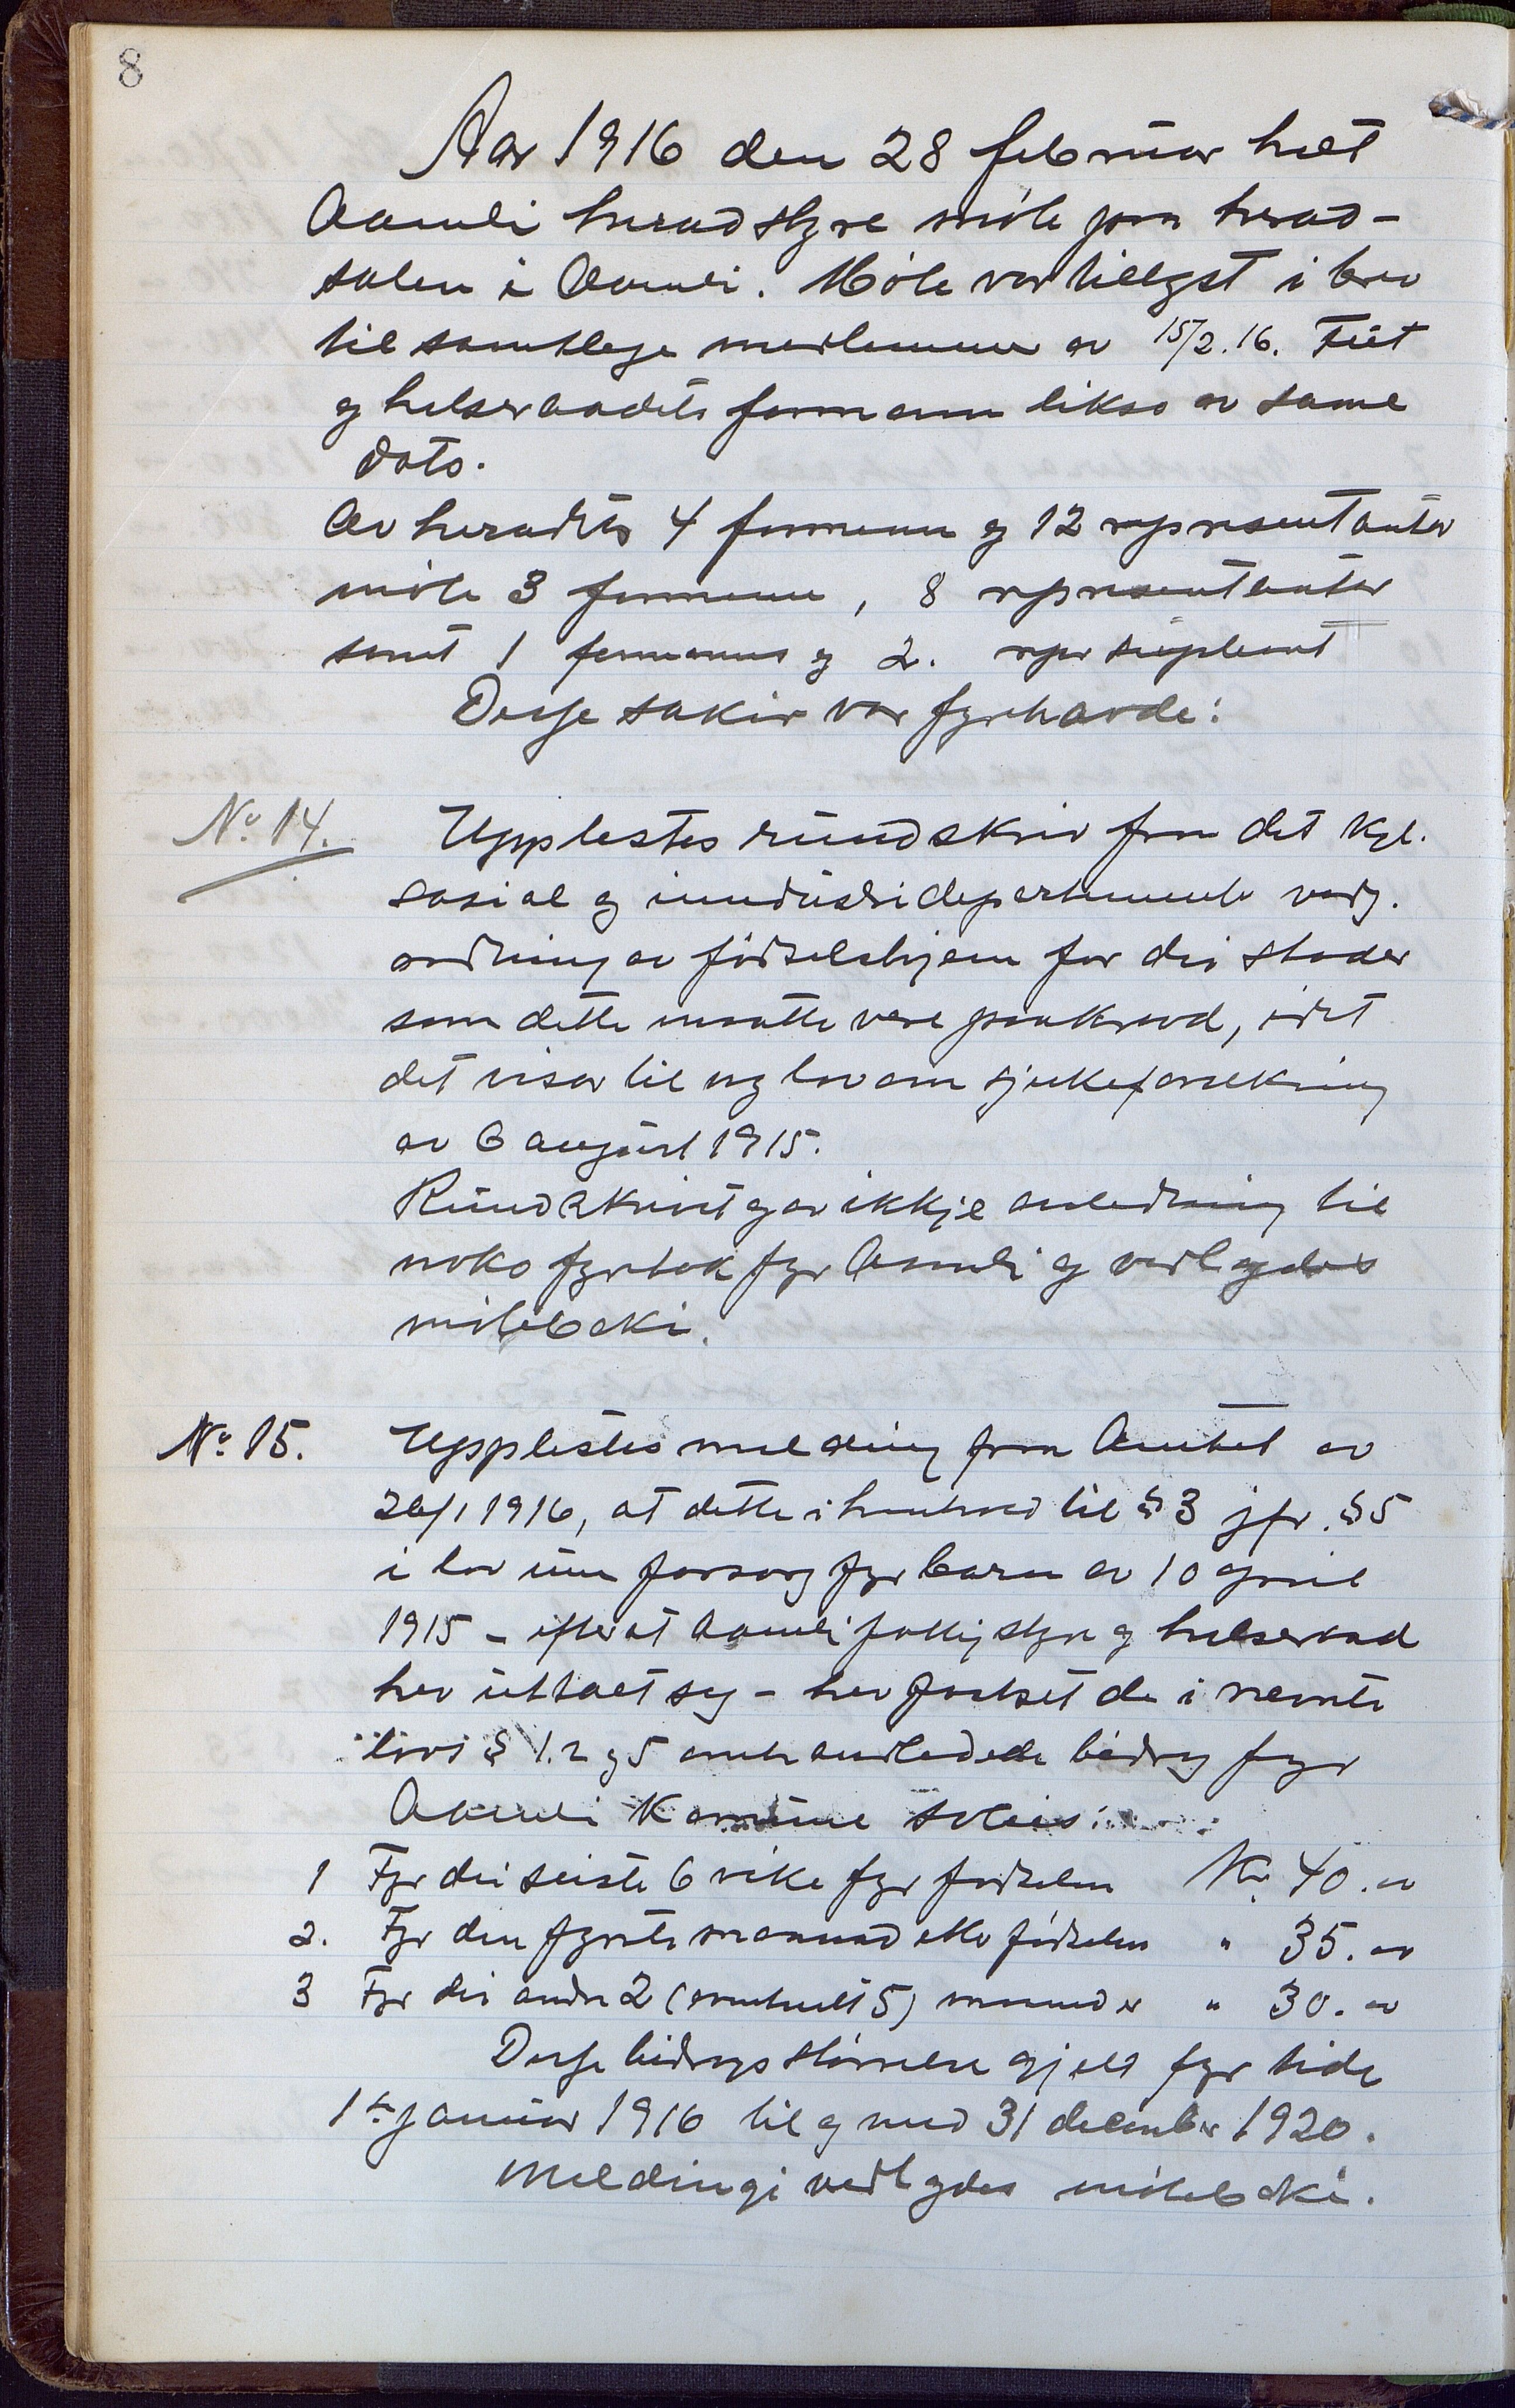 8
Aar 1916 den 28 februar helt
Aamli heradstyre möte paa herad-
salen i Aamli. Möte var tillyst i brev
til samtlege medlemmer av 15/2.16. Fut
og helseraadets formann likso av same
dato.
Av heradets 4 formenn og 12 representanter
möte 3 formenn, 8 representanter
samt 1 formanns og 2. repr suplent
Desse sakir var fyrehavde:
No 14. Upplestes rundskriv fraa det Kgl.
sosial og industridepartemente vedg.
ordning av födselshjem for dei stader
som dette maatte vere paakravd, idet
det viser til ny lov om sjukeforsekring
av 6 august 1915.
Rundskrivet gav ikkje anledning til
noko fyretak fyr Aamli og vedlegdes
möteboki.
No 15. Upplestes melding fraa Amtet av
26/1 1916, at dette i henhold til § 3 jfr. § 5
i lov um forsorg fyr barn av 10 april
1915 – efter at Aamli fattigstyre og helseraad
hev uttalt seg – hev fastset de i nevnte
lovs § 1.2 og 5 omhandlede bidrag fyr
Aamli Komune soleis:
1 Fyr dei seiste 6 vike fyr födselen Kr. 40.00
2. Fyr den fyrste maanad etter födselen " 35.00
3 Fyr dei andre 2 (eventuelt 5) maanader " 30.00
Desse bidragsstörrelse gjeld fyr tide
1ste januar 1916 til og med 31 december 1920.
Meldingi vedlegdes möteboki.